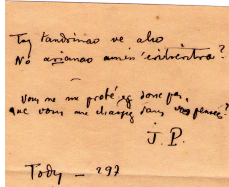 Tsy tandrinao ve aho
No arianao amin'eritreritra?
vous ne me protégez donc pas,
que vous me chargez sans vos pensées?
J. P.
Tody — 297